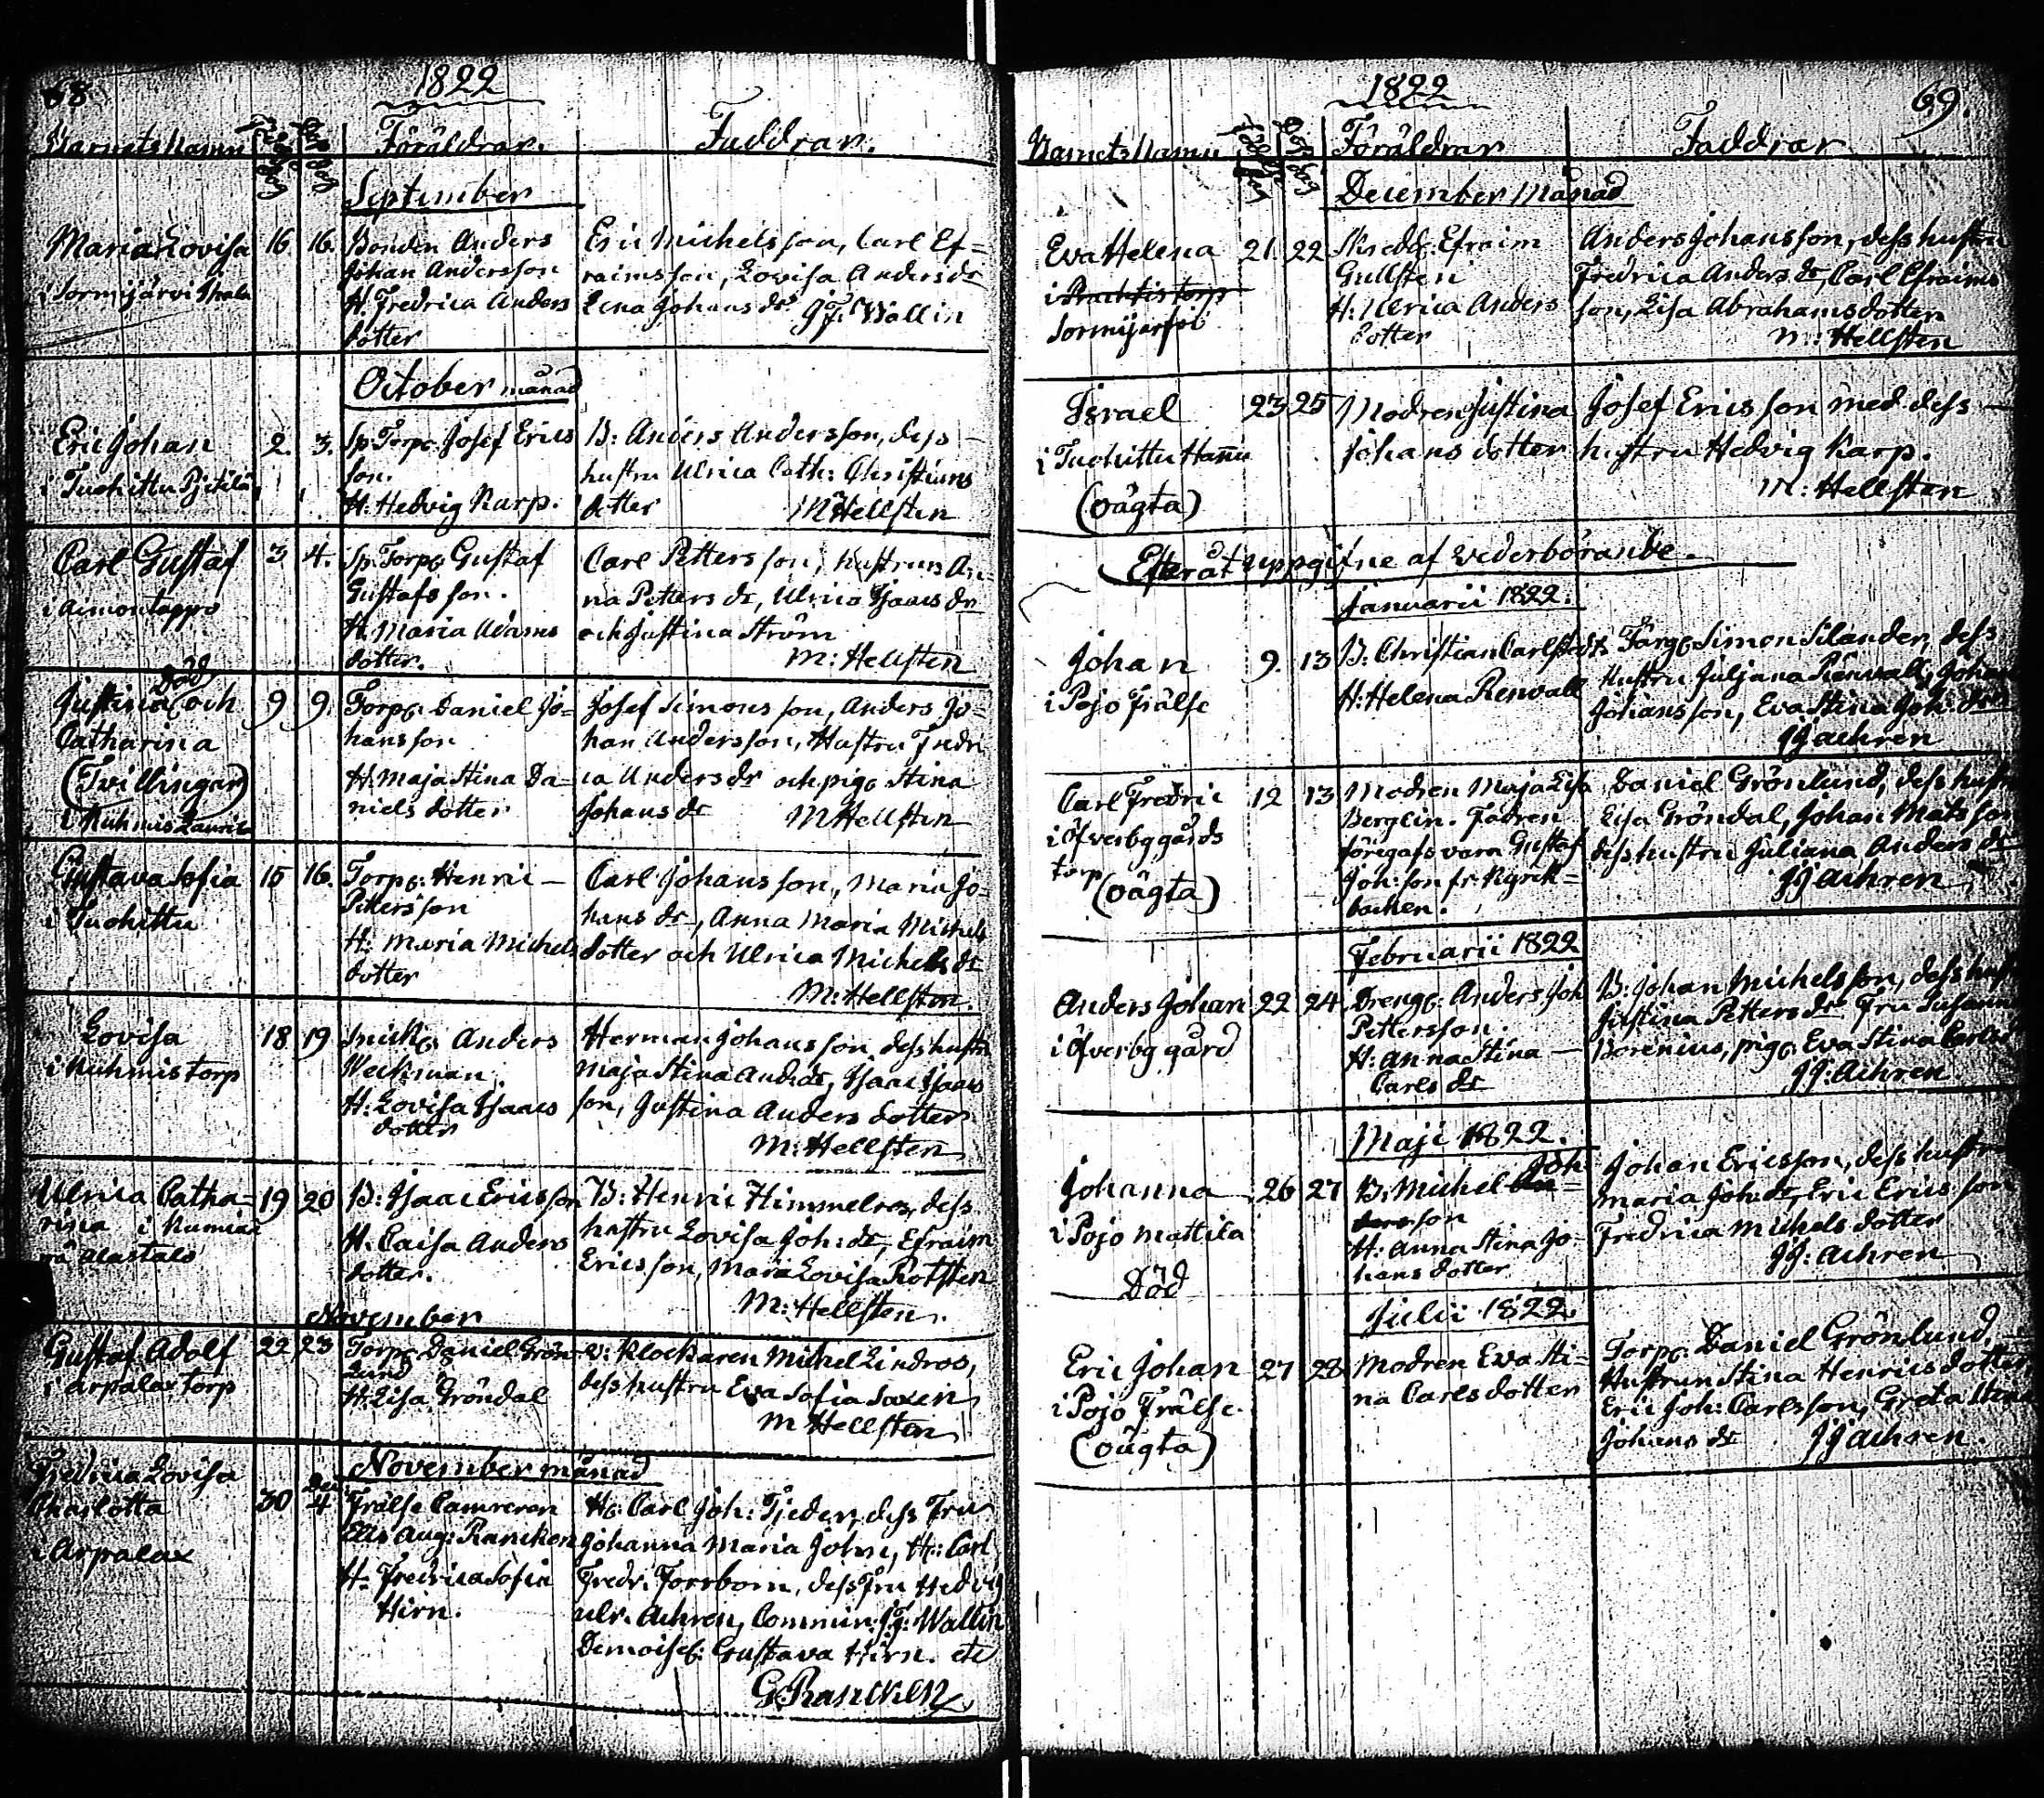 68
1822
Barnets Namn
Föräldrar.
Faddrar.
September
Maria Lovisa 16 16. Bonden Anders Eric Michelsson, Carl Ef=
Johan Andersson raimsson, Lovisa Anders dr
i Sormijärvi H. Fredrica Anders Lena Johans dr J F. Wallin
dotter
October månad
Eric Johan 2. 3. Sp. Torp. Josef Erics B: Anders Andersson, dess
i Tuohittu son. hustru Ulrica Cath: Christians
H: Hedvig Karp. dotter M Hellsten
Carl Gustaf 3 4. Sp. Torp. Gustaf Carl Pettersson, hustrun An=
i Aimontappo Gustafsson. na Petters dr, Ulrica Isaacs dr
H. Maria Adams och Justina Ström
dotter. M: Hellsten
Död
Justina och 9 9. Torp. Daniel Jo= Josef Simonsson, Anders Jo=
Catharina hansson han Andersson, Hustru Fredri
(Tvillingar) H. Maja Stina Da= ca Anders dr och pig. Stina
i Kuhmis Laurila niels dotter Johans dr M Hellsten
Gustava Sofia 15 16. Torp. Henric Carl Johansson, Maria Jo=
i Tuohittu Pettersson hans dr, Anna Maria Michels
H: Maria Michels dotter och Ulrica Michels dr
dotter M: Hellsten.
Lovisa 18 19 Snick. Anders Herman Johansson dess hustru
i Kuhmis torp Weckman Maja Stina Ands dr, Isaac Isaacs
H: Lovisa Isaacs son, Justina Anders dotter
dotter M: Hellsten
Ulrica Catha= 19 20 B: Isaac Ericsson B: Henric Himmelros, dess
rina i H. Caisa Anders hustru Lovisa Joh: dr, Efraim
Alastalo dotter. Ericsson, Maria Lovisa Rotsten
M: Hellsten.
November
Gustaf Adolf 22 23 Torp. Daniel Grön= v: Klockaren Michel Lindros,
i Arpalax torp lund dess hustru Eva Sofia Saxen
H. Lisa Gröndal M Hellsten
November månad
Fredrica Lovisa Dec.
Charlotta 30 4 Frälse Camreren H. Carl Joh: Tjeder, dess Fru
i Arpalax Elis Aug: Rancken Johanna Maria John, H: Carl
H. Fredrica Sofia Fredr. Forsbom, dess Fru Hedvig
Hirn. Ulr. Achren, Commin: J F: Wallin
Demoisel: Gustava Hirn. etc
G Rancken
1822
69.
Barnets Namn
Föräldrar
Faddrar
December Månad
Eva Helena 21. 22 Skredd. Efraim Anders Johansson, dess hustru
i Gullsten Fredrica Anders dr, Carl Efraims
Sormijärfvi H: Ulrica Anders son, Lisa Abrahamsdotter
dotter M: Hellsten
Israel 23 25 Modren Justina Josef Ericsson med dess
i Tuohittu Hannu Johans dotter hustru Hedvig Karp.
(oägta) M: Hellsten
Efteråt uppgifne af vederbörande
Januarii 1822.
Johan 9. 13 B: Christian Carlstedt Färg. Simon Silander, dess
i Pojo Frälse H: Helena Renvall Hustru Juljana Renvall, Johan
Johansson, Eva Stina Joh: dotter
J J Achren
Carl Fredric 12 13 Modren Maja Lisa Daniel Grönlund, dess hustru
i Öfverby gårds Berglin. Fadren Lisa Gröndal, Johan Matsson
torp föregafs vara Gustaf dess hustru Juliana Anders dr
(oägta) Joh: son fr. Kyrck= J J Achren
backen.
Februarii 1822
Anders Johan 22 24 Dreng. Anders Joh B: Johan Michelsson, dess hustru
i Öfverby gård Pettersson. Justina Petters dr Fru Susanna
H: Anna Stina Borenius, pig. Eva Stina Carls dr
Carls dr J J: Achren
Maji 1822.
Johanna 26 27 B: Michel Joh Johan Ericsson, dess hustru
i Pojo Mattila son Maria Joh: dr, Eric Ericsson
H: Anna Stina Jo= Fredrica Michels dotter
Död hans dotter J J: Achren
Julii 1822.
Eric Johan 27 28 Modren Eva Sti= Torp. Daniel Grönlund,
i Pojo Frälse na Carls dotter Hustrun Stina Henrics dotter
(oägta) Eric Joh: Carlsson, Greta Stina
Johans dr J J Achren.